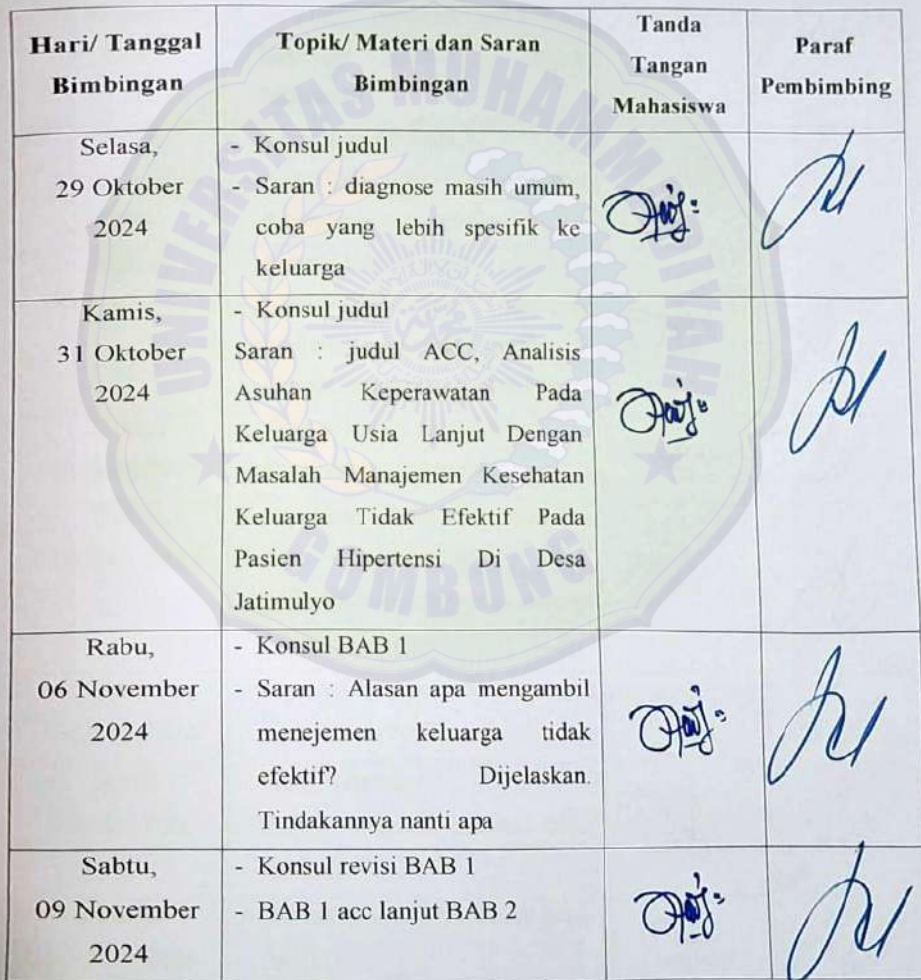 Hari/ Tanggal
Bimbingan
Topik/ Materi dan Saran
Bimbingan
Tanda
Tangan
Mahasiswa
Paraf
Pembimbing
Selasa,
29 Oktober
2024
- Konsul judul
- Saran : diagnose masih umum,
coba yang lebih spesifik ke
keluarga
Kamis,
31 Oktober
2024
- Konsul judul
Saran : judul ACC, Analisis
Asuhan Keperawatan Pada
Keluarga Usia Lanjut Dengan
Masalah Manajemen Kesehatan
Keluarga Tidak Efektif Pada
Pasien Hipertensi Di Desa
Jatimulyo
Rabu,
06 November
2024
- Konsul BAB 1
- Saran : Alasan apa mengambil
menejemen keluarga tidak
efektif? Dijelaskan.
Tindakannya nanti apa
Sabtu,
09 November
2024
- Konsul revisi BAB 1
- BAB 1 acc lanjut BAB 2
UNIVERSITAS MUHAMMADIYAH
GOMBONG